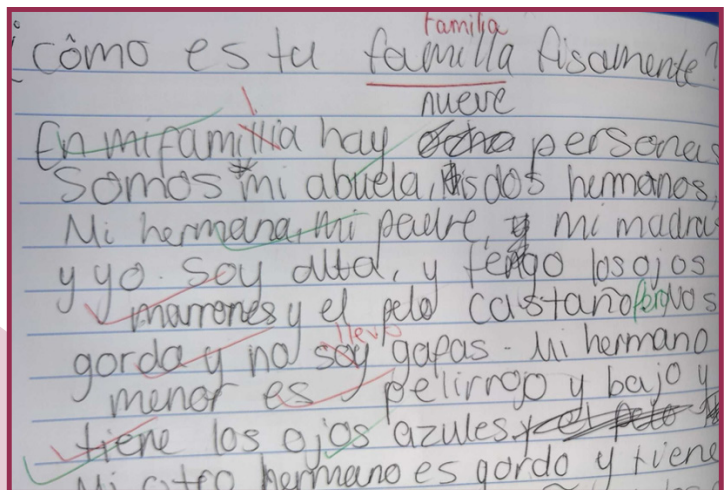 familia
¿cômo es tu familla fisamente?
nueve
En mi familia hay personas
Somos mi abuela, dos hermanos,
Mi hermana, mi padre, y mi madra
y yo. Soy alta, y tengo los ojos
marrones y el pelo castaño pero
llevo
gorda y no soy gafas. Mi hermano
menor es pelirrojo y bajo y
tiene los ojos azules
Mi otro hermano es gordo y tiene